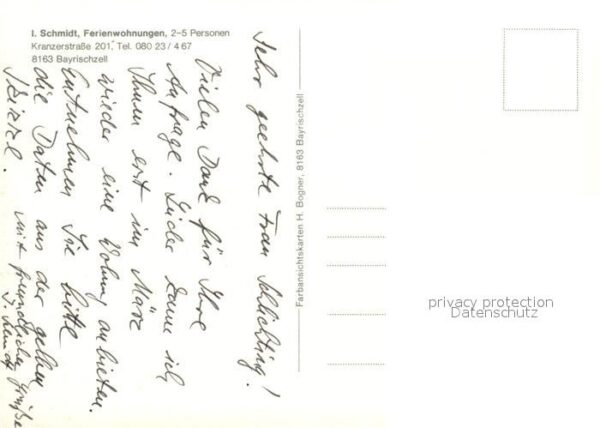 I. Schmidt, Ferienwohnungen, 2–5 Personen
Kranzerstraße 201, Tel. 080 23 / 4 67
8163 Bayrischzell
Sehr geehrte Frau Schlichting!
Vielen Dank für Ihre
Anfrage. Leider kann ich
Ihnen erst im März
wieder eine Wohnung anbieten.
Entnehmen Sie bitte
die Daten aus der gelben
Skizze.
mit freundlichen Grüße
I. Schmidt
Farbansichtskarten H. Bogner, 8163 Bayrischzell
privacy protection
Datenschutz